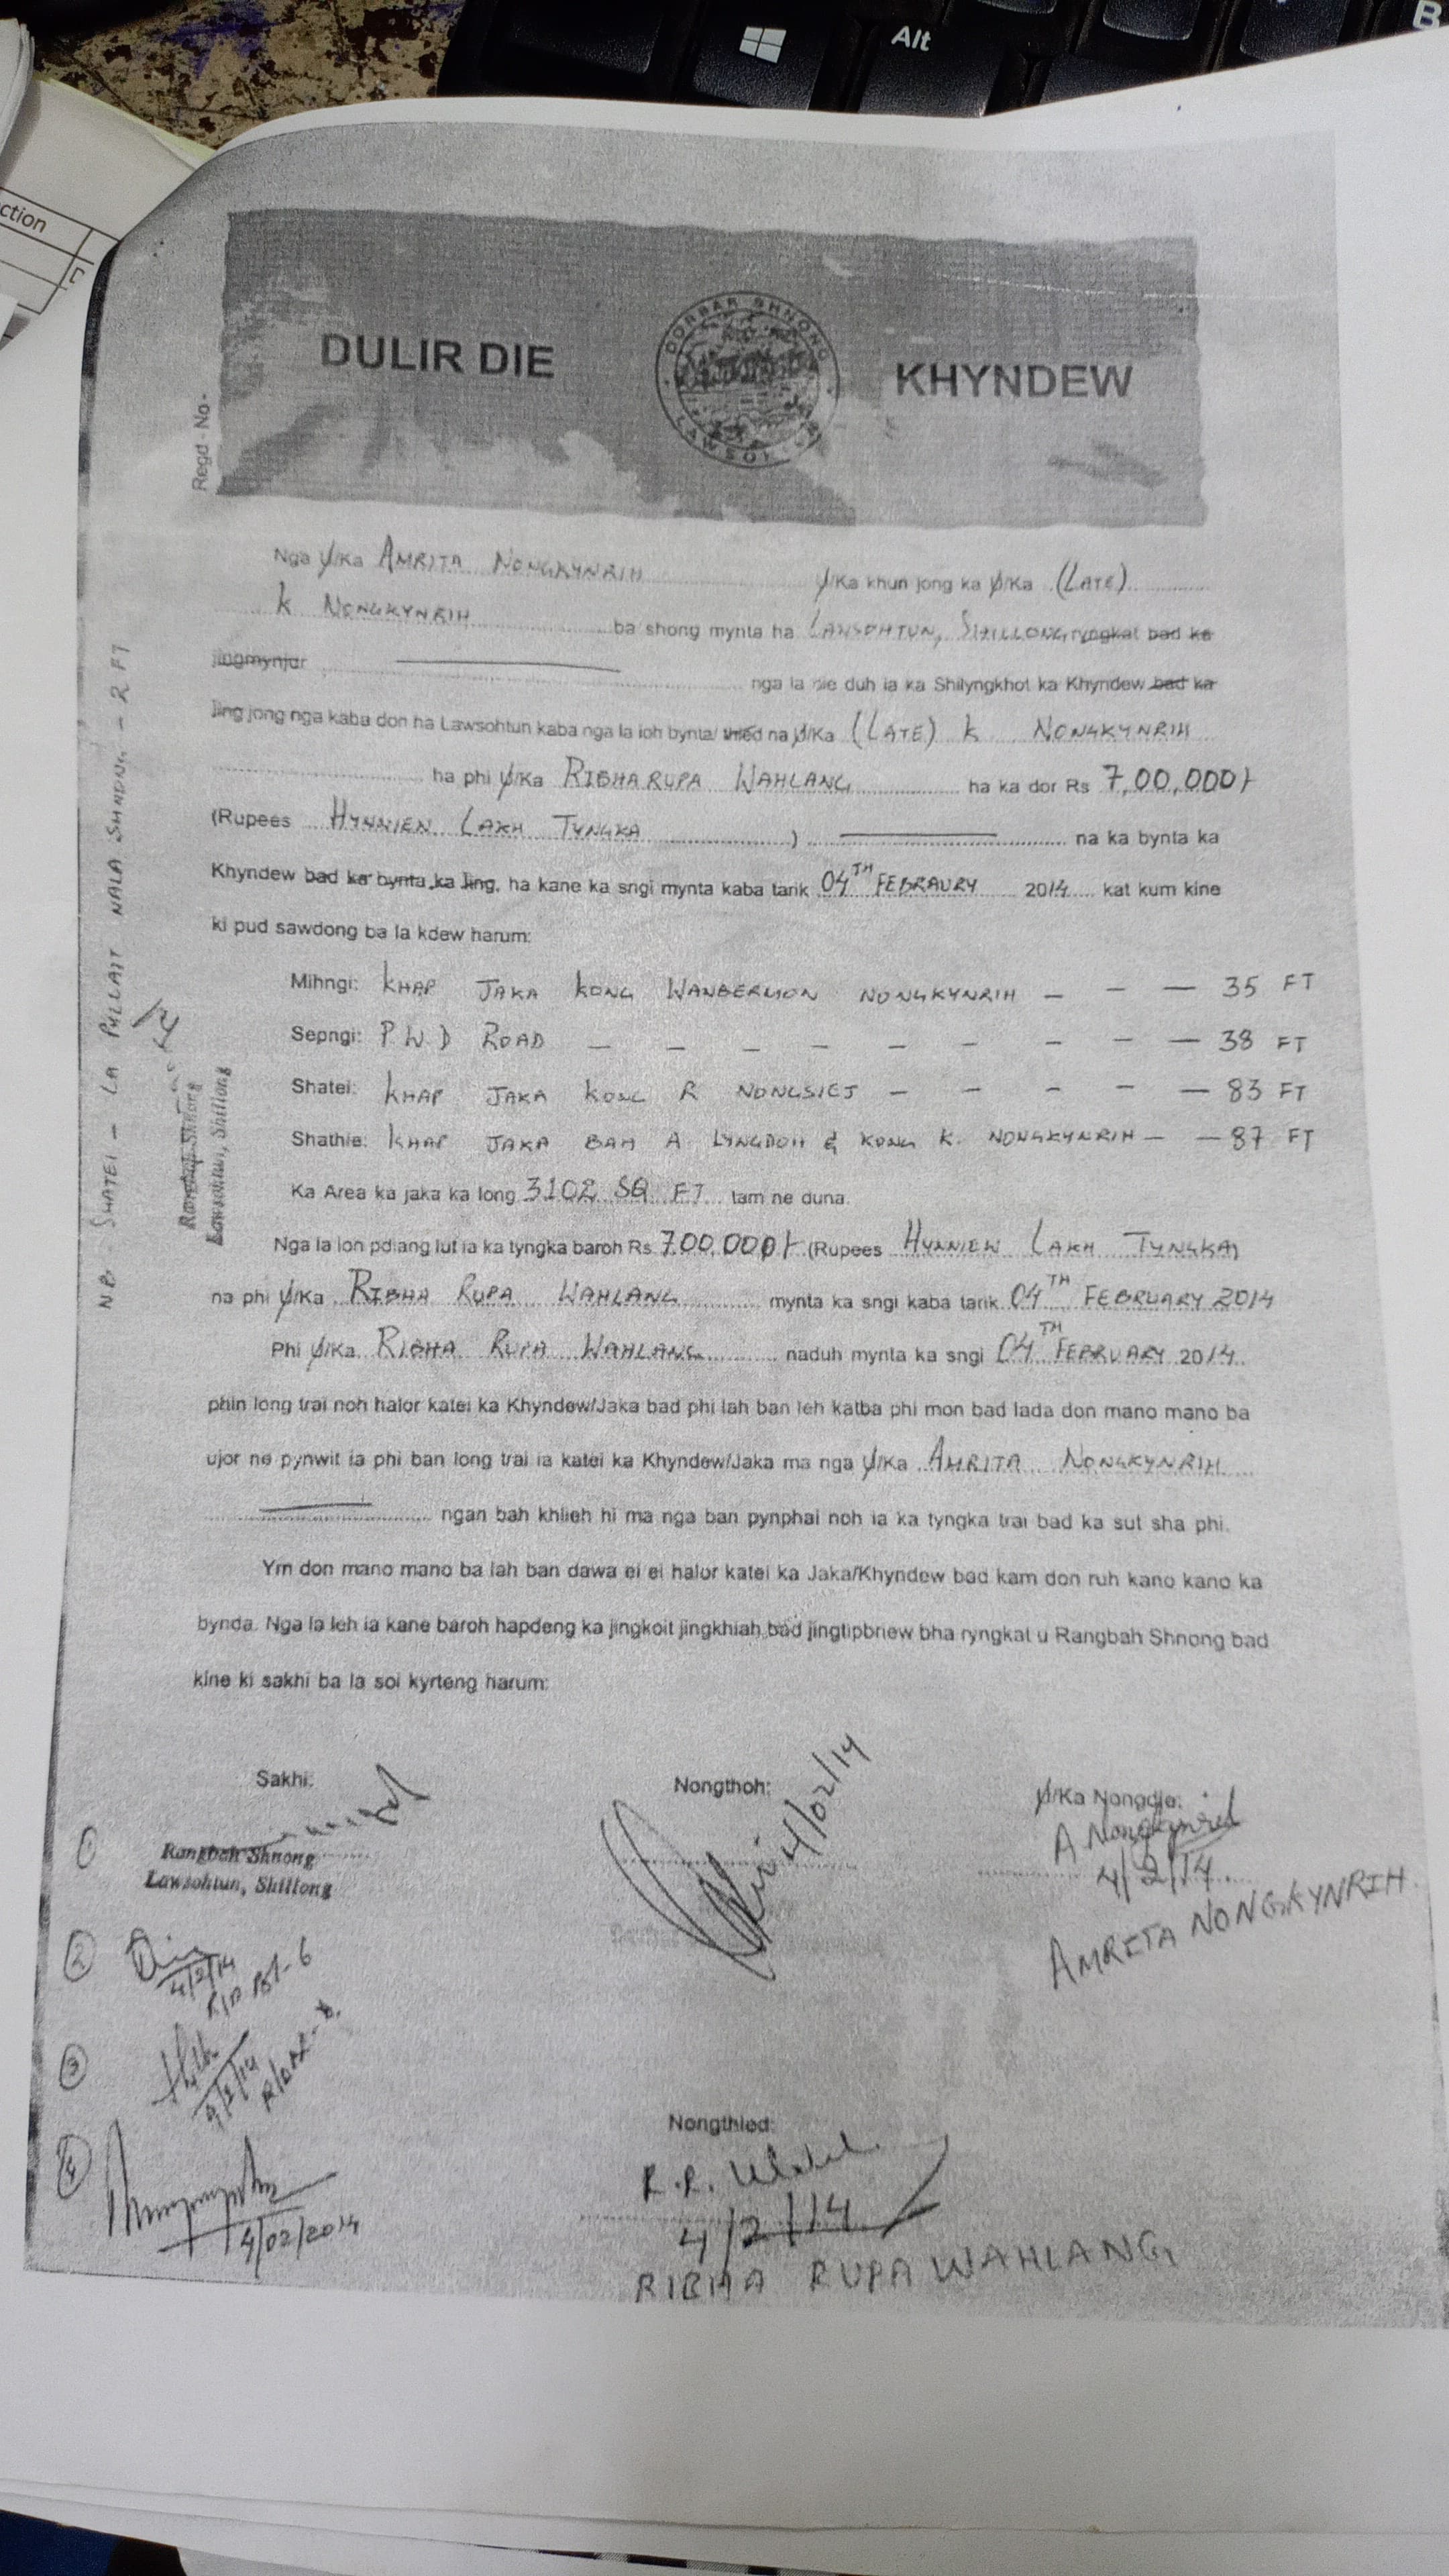 Alt
B
ction
DULIR DIE KHYNDEW
DORBAR SHNONG
Regd - No -
Nga U/Ka AMRITA NONGKYNRIH U/Ka khun jong ka U/Ka (LATE)
K NONGKYNRIH ba shong mynta ha LAWSOHTUN, SHILLONG ryngkat bad ka
jingmynjur nga la die duh ia ka Shilyngkhot ka Khyndew bad ka
Jing jong nga kaba don ha Lawsohtun kaba nga la ioh bynta/ thied na U/Ka (LATE) K NONGKYNRIH
ha phi U/Ka RIBHARUPA WAHLANG ha ka dor Rs 7,00,000/-
(Rupees HYNNIEW LAKH TYNGKA ) na ka bynta ka
Khyndew bad ka bynta ka Jing, ha kane ka sngi mynta kaba tarik 04TH FEBRAURY 2014 kat kum kine
ki pud sawdong ba la kdew harum:
Mihngi: KHAP JAKA KONG WANBERMON NONGKYNRIH - - - 35 FT
Sepngi: P.W.D ROAD - - - - - - - - - 38 FT
Shatei: KHAP JAKA KONG R NONGSIEJ - - - - - 83 FT
Shathie: KHAP JAKA BAH A LYNGDOH & KONG K. NONGKYNRIH - - 87 FT
Ka Area ka jaka ka long 3102 SQ FT tam ne duna.
Nga la ion pdiang lut ia ka tyngka baroh Rs 700,000/- (Rupees HYNNIEW LAKH TYNGKA)
na phi U/Ka RIBHA RUPA WAHLANG mynta ka sngi kaba tarik 04TH FEBRUARY 2014
Phi U/Ka RIBHA RUPA WAHLANG naduh mynta ka sngi 04TH FEBRUARY 2014
phin long trai noh halor katei ka Khyndew/Jaka bad phi lah ban leh katba phi mon bad lada don mano mano ba
ujor ne pynwit ia phi ban long trai ia katei ka Khyndew/Jaka ma nga U/Ka AMRITA NONGKYNRIH
ngan bah khlieh hi ma nga ban pynphai noh ia ka tyngka trai bad ka sut sha phi.
Ym don mano mano ba lah ban dawa ei ei halor katei ka Jaka/Khyndew bad kam don ruh kano kano ka
bynda. Nga la leh ia kane baroh hapdeng ka jingkoit jingkhiah bad jingtipbriew bha ryngkat u Rangbah Shnong bad
kine ki sakhi ba la soi kyrteng harum:
N.B. SHATEI - LA PYLLAIT NALA SHNONG - 2 FT
Rangbah Shnong
Lawsohtun, Shillong
Sakhi: Nongthoh: U/Ka Nongdie:
4/02/14
A Nongkynrih
4/2/14.
AMRITA NONGKYNRIH.
1
Rangbah Shnong
Lawsohtun, Shillong
2
4/2/14
3
4/2/14
4
4/02/2014
Nongthied:
R.R. Wahlang
4/2/14
RIBHA RUPA WAHLANG